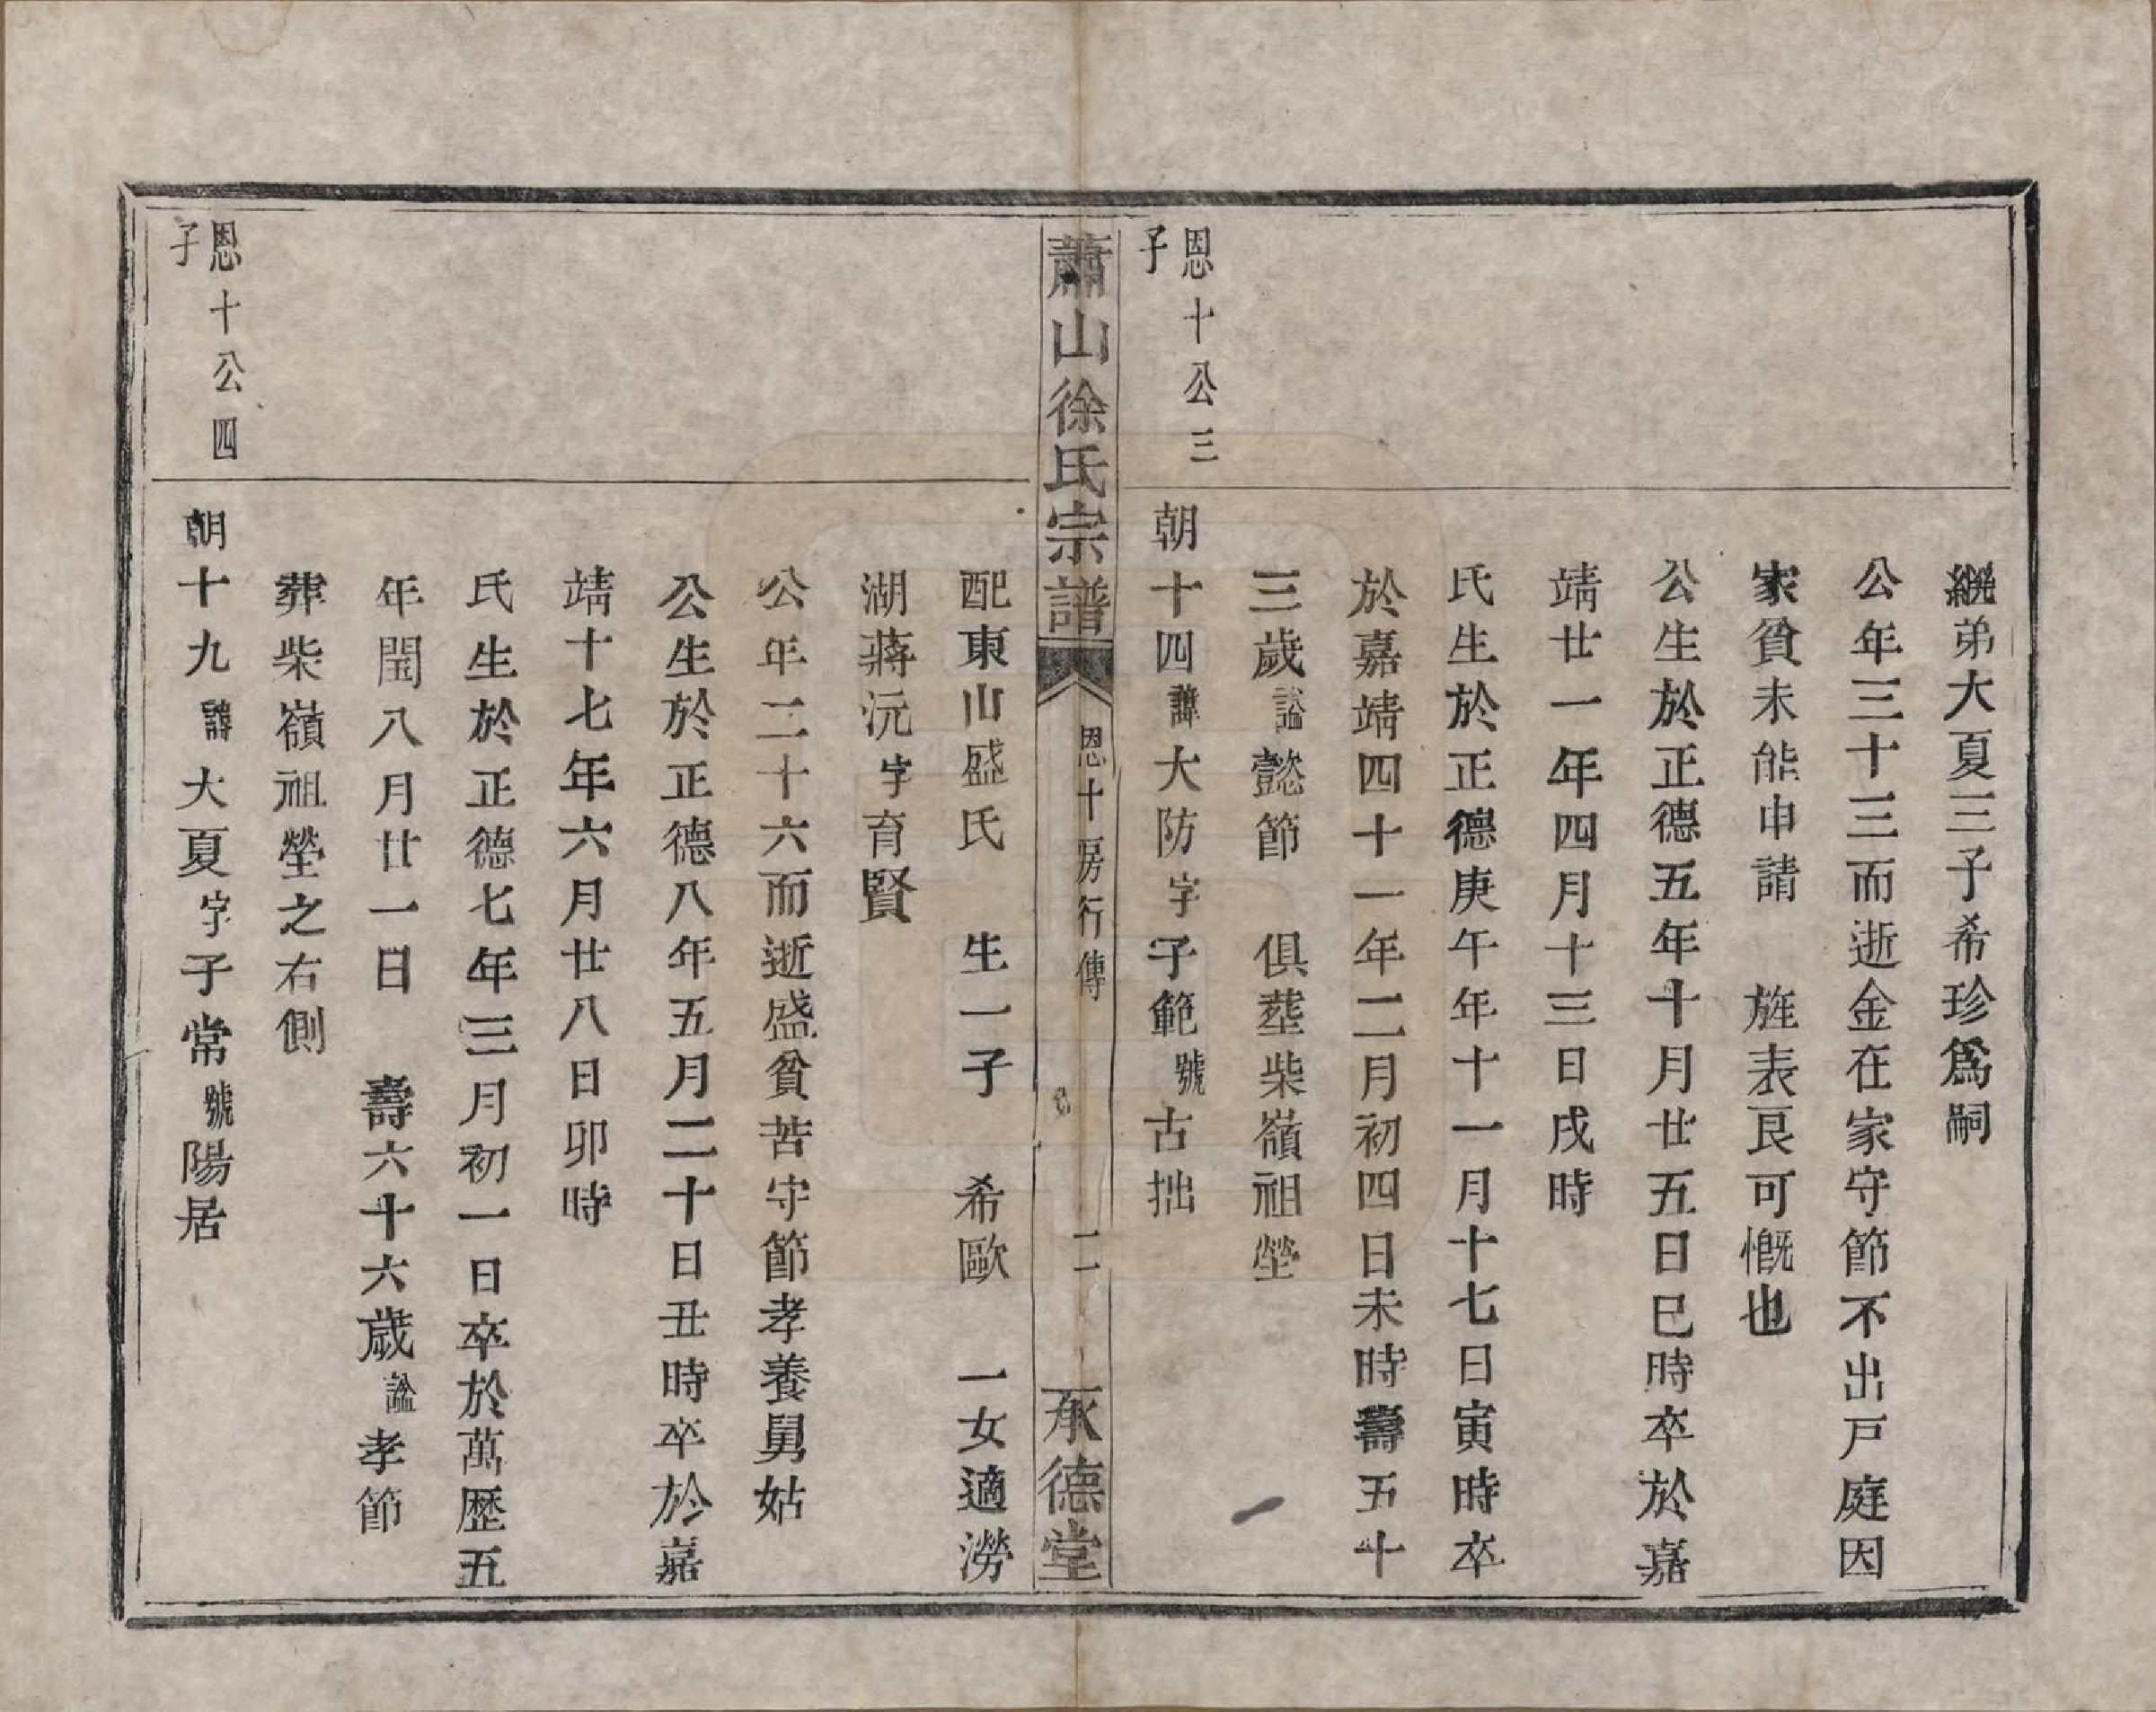 繼弟大夏三子希珍爲嗣
公年三十三而逝金在家守節不出戸庭因
家貧未能申請　旌表良可慨也
公生於正德五年十月廿五日巳時卒於嘉
靖廿一年四月十三日戌時
氏生於正德庚午年十一月十七日寅時卒
於嘉靖四十一年二月初四日未時壽五十
三歲諡懿節　俱塟柴嶺祖塋
恩十公三
子
朝十四諱大防字子範號古拙
蕭山徐氏宗譜
恩十房行傳
二
承德堂
配東山盛氏　生一子　希歐　一女適澇
湖蔣沅字育賢
公年二十六而逝盛貧苦守節孝養舅姑
公生於正德八年五月二十日丑時卒於嘉
靖十七年六月廿八日卯時
氏生於正德七年三月初一日卒於萬歷五
年閏八月廿一日　壽六十六歲諡孝節
葬柴嶺祖塋之右側
恩十公四
子
朝十九諱大夏字子常號陽居